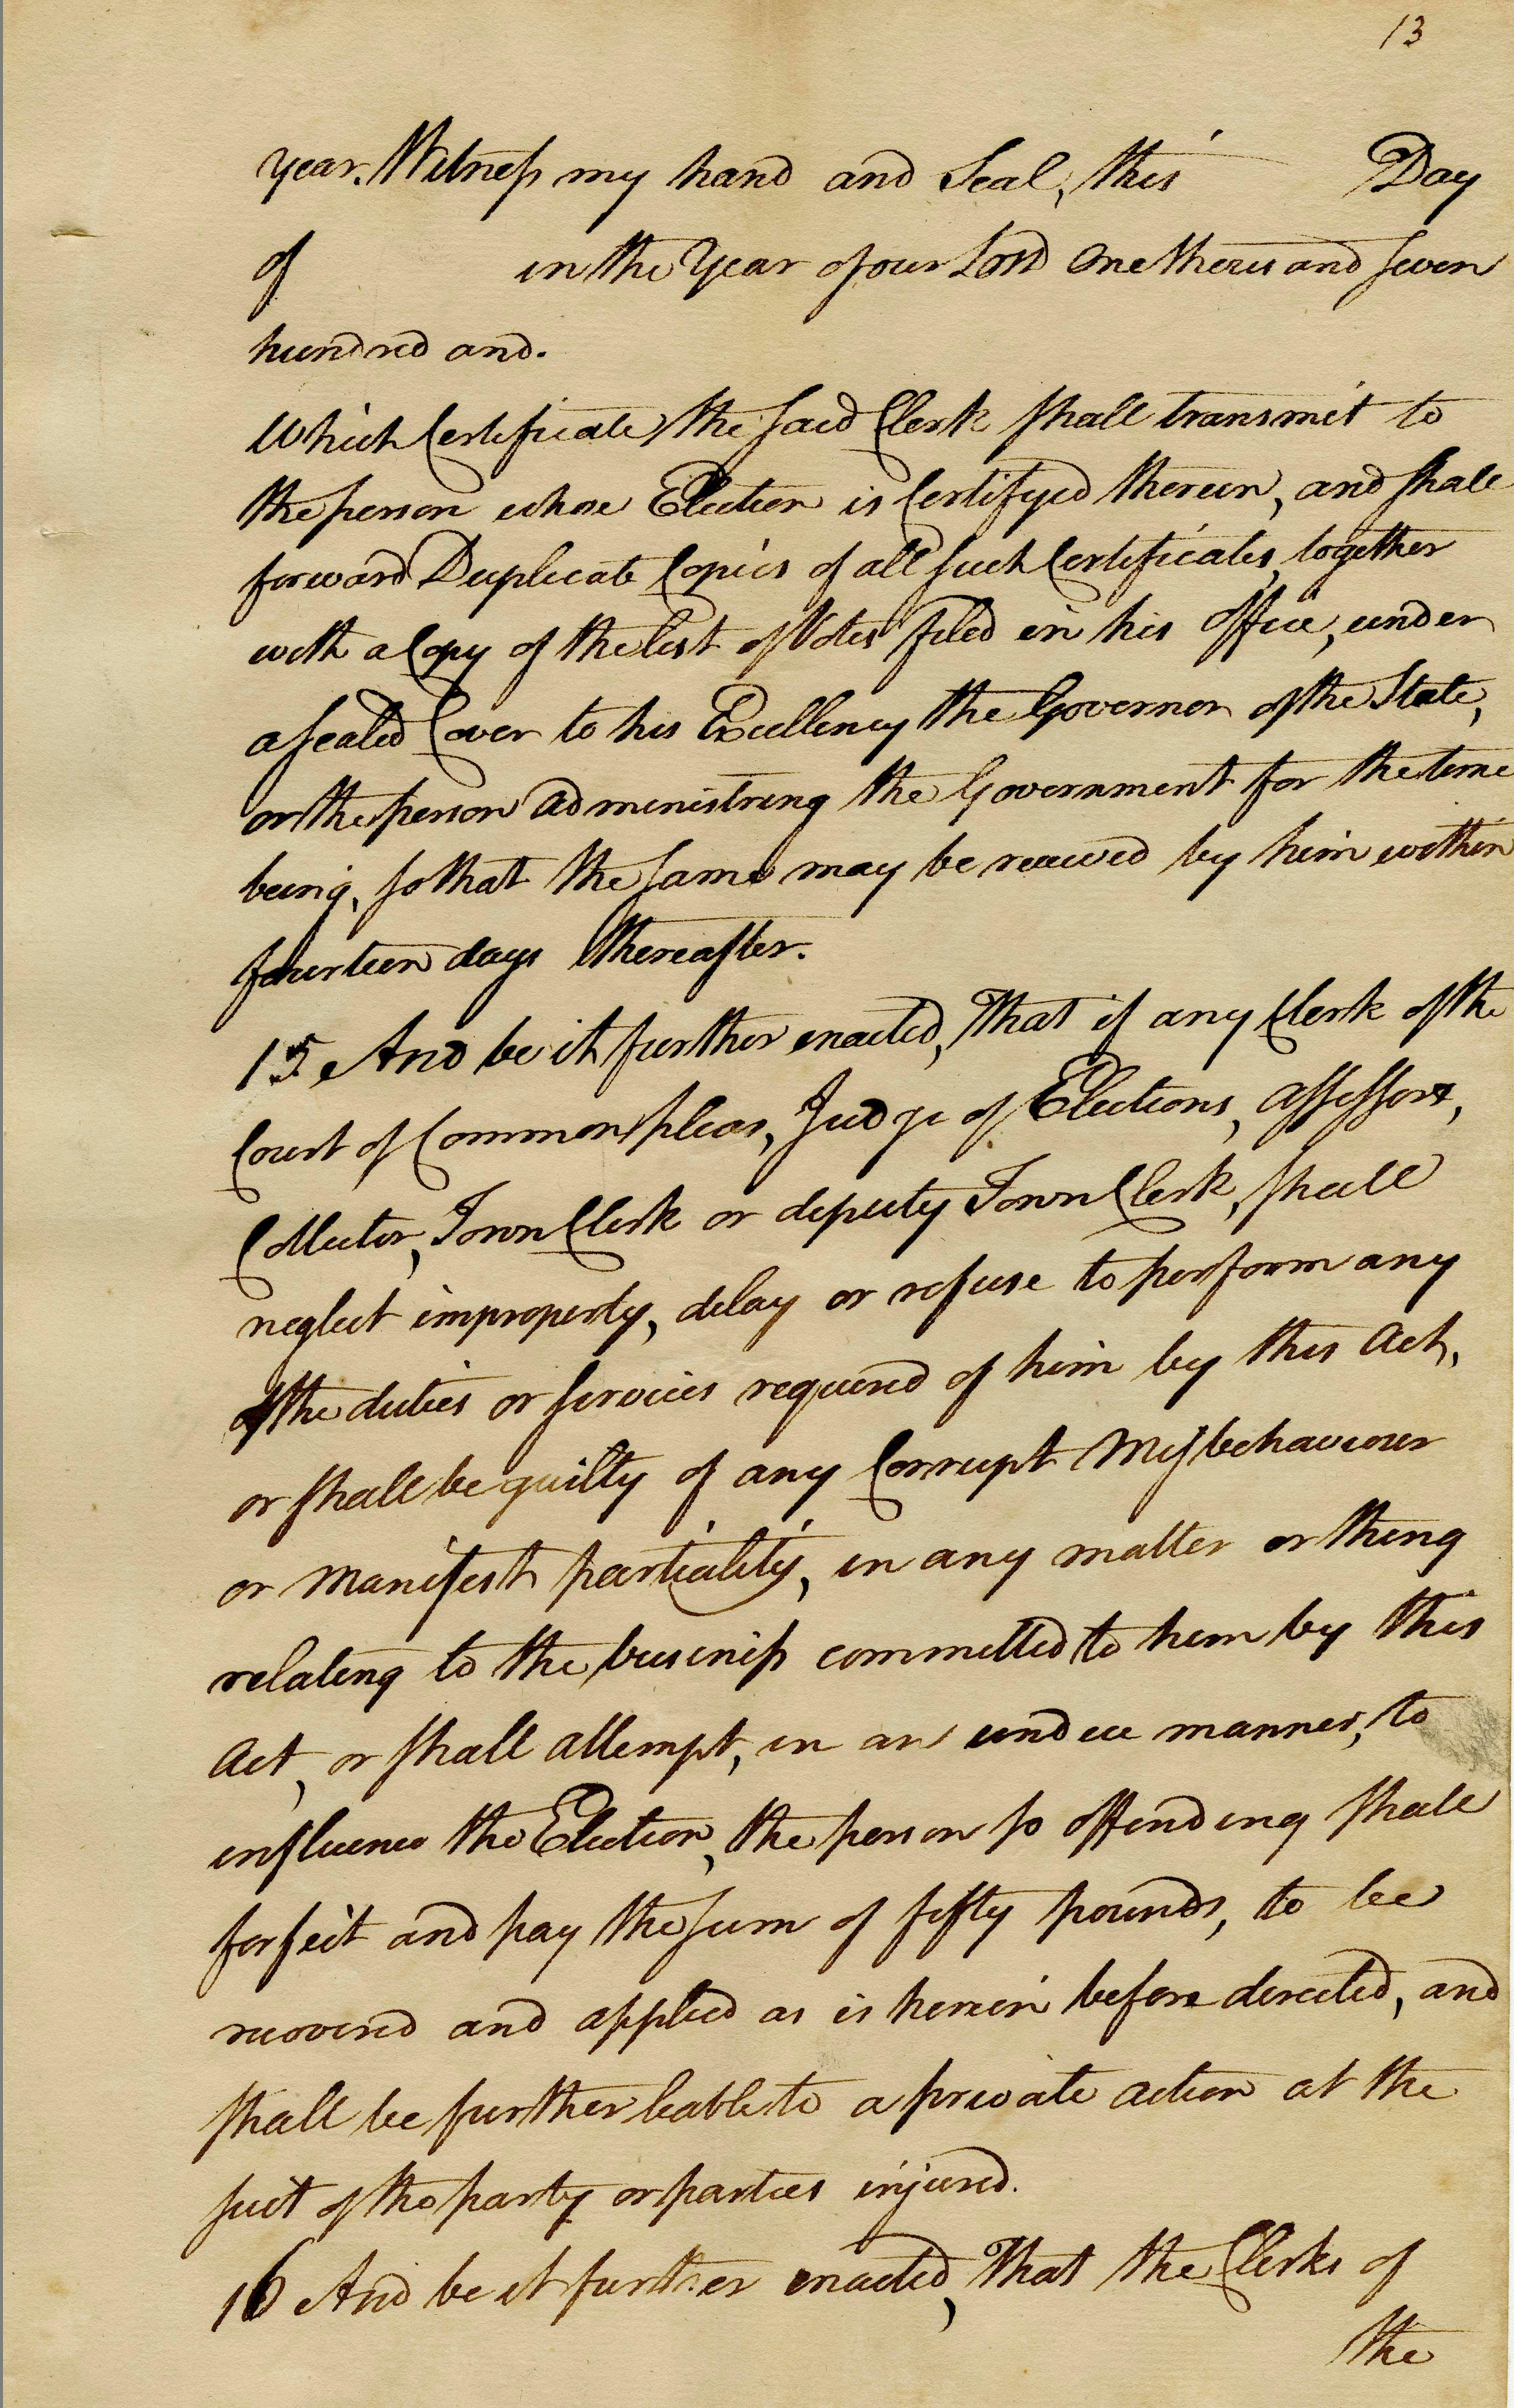 13
year. Witness my hand and Seal, this Day
of in the Year of our Lord One thousand seven
hundred and.
Which Certificate the said Clerk shall transmit to
the person whose Election is Certifyed therein, and shall
forward Duplicate Copies of all such Certificates, together
with a Copy of the list of Votes filed in his Office, under
a sealed Cover to his Excellency the Governor of the State,
or the person administring the Government for the time
being, so that the same may be received by him within
fourteen days thereafter.
15 And be it further enacted, That if any Clerk of the
Court of Common pleas, Judge of Elections, Assessor,
Collector, Town Clerk or deputy Town Clerk, shall
neglect improperly, delay or refuse to perform any
of the duties or services required of him by this Act,
or shall be guilty of any Corrupt Misbehaviour
or Manifest partiality, in any matter or thing
relating to the business committed to him by this
Act, or shall attempt, in an undue manner, to
influence the Election, the person so offending shall
forfeit and pay the sum of fifty pounds, to be
recovered and applied as is herein before directed, and
shall be further liable to a private action at the
suit of the party or parties injured.
16 And be it further enacted, That the Clerks of
the